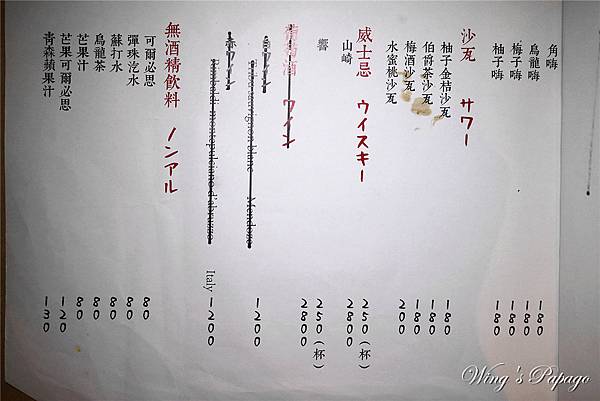 角嗨 180
烏龍嗨 180
梅子嗨 180
柚子嗨 180
沙瓦 サワー
柚子金桔沙瓦 180
伯爵茶沙瓦 180
梅酒沙瓦 180
水蜜桃沙瓦 200
威士忌 ウイスキー
250(杯)
山崎 2800
響 250(杯)
2800
葡萄酒 ワイン
Sauvignon blanc Mendoza 1200
montepulciano d'abruzzo Italy 1200
無酒精飲料 ノンアル
可爾必思 80
彈珠汽水 80
蘇打水 80
烏龍茶 80
芒果汁 80
芒果可爾必思 120
青森蘋果汁 130
Wing's Papago